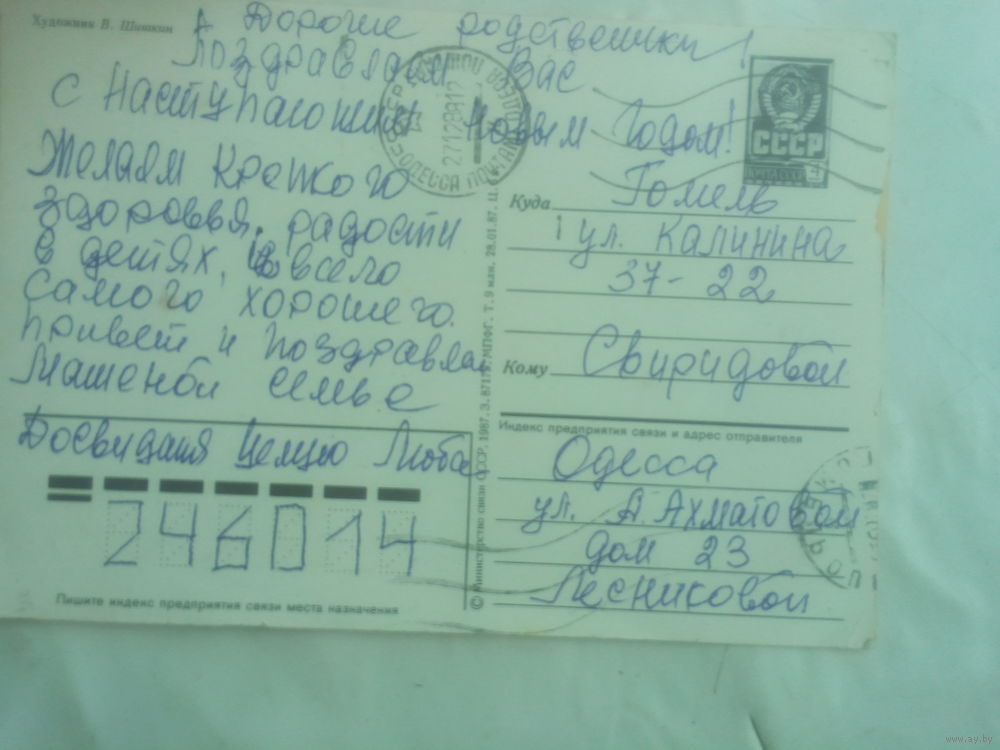 Художник В. Шишкин
А Дорогие родственики!
Поздравляем Вас
с Наступающим Новым Годом!
Желаем Крепкого
здоровья, радости
в детях, всего
самого хорошего.
Привет и Поздравляю
Машеной семье
Досвидания Целую Люба
246014
Пишите индекс предприятия связи места назначения
© Министерство связи СССР, 1987. З. 87179. МПФГ. Т. 9 млн. 28.01.87. Ц.
ОДЕССА ПОЧТАМТ
27128812
СССР
ПОЧТА СССР
4
Куда Гомель
ул. Калинина
37-22
Кому Свиридовой
Индекс предприятия связи и адрес отправителя
Одесса
ул. А. Ахматовой
дом 23
Лесниковой
www.ay.by